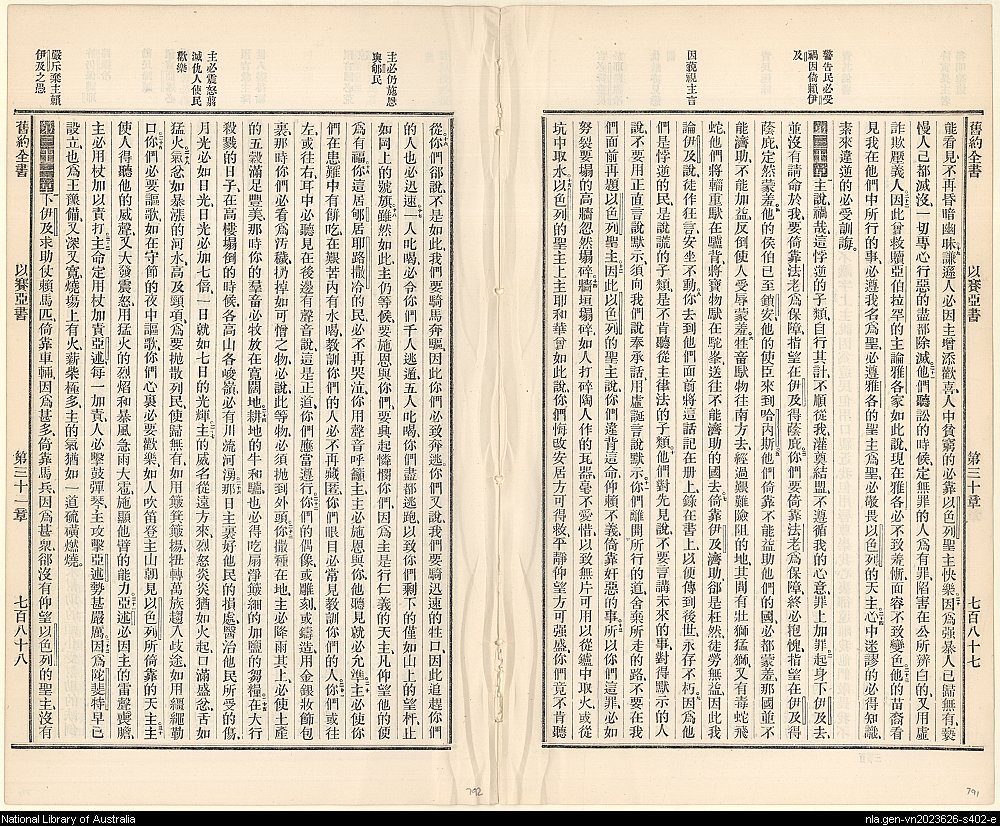 舊約全書　以賽亞書　第三十章　七百八十七
警告民必受禍因倚賴伊及
因藐視主言
能看見不再昏暗幽昧謙遜人必因主增添歡喜人中貧窮的必靠以色列聖主快樂因爲強暴人已歸無有褻
慢人已都滅沒一切專心行惡的盡都除滅他們聽訟的時候定無罪的人爲有罪陷害在公所辨白的又用虛
詐欺壓義人因此曾救贖亞伯拉罕的主論雅各家如此說現在雅各必不致羞慚面容不致變色他的苗裔看
見我在他們中所行的事必遵我名爲聖必遵雅各的聖主爲聖必敬畏以色列的天主心中迷謬的必得知識
素來違逆的必受訓誨
第三十章主說禍哉這悖逆的子類自行其計不順從我灌奠結盟不遵循我的心意罪上加罪起身下伊及去
並沒有請命於我要倚靠法老爲保障指望在伊及得蔭庇你們要倚靠法老爲保障終必抱愧指望在伊及得
蔭庇定然蒙羞他的侯伯已至鎖安他的使臣來到哈內斯他們倚靠不能益助他們的國必都蒙羞那國並不
能濟助不能加益反倒使人受辱蒙羞牲畜馱物往南方去經過艱難險阻的地其間有壯獅猛獅又有毒蛇飛
蛇他們將輜重馱在驢背將寶物馱在駝峯送往不能濟助的國去倚靠伊及濟助卻是枉然徒勞無益因此我
論伊及說徒作狂言安坐不動你去到他們面前將這話記在册上錄在書上以便傳到後世永存不朽因爲他
們是悖逆的民是說謊的子類是不肯聽從主律法的子類他們對先見說不要見對得默示的人
說不要用正直言說默示須向我們說奉承話用虛誕言說默示你們離開所行的道舍棄所走的路不要在我
們面前再題以色列聖主因此以色列的聖主說你們違背這命仰賴不義倚靠奸惡的事所以你們這罪必如
努裂要塌的高牆忽然塌碎牆垣塌碎如人打碎陶人作的瓦器毫不愛惜以致無片可用以從爐中取火或從
坑中取水以色列的聖主上主耶和華曾如此說你們悔改安居方可得救平靜仰望方可強盛你們竟不肯聽
791
舊約全書　以賽亞書　第三十一章　七百八十八
主必仍施恩與郇民
主必震怒翦滅仇人使民歡樂
嚴斥棄主賴伊及之愚
從你們卻說不是如此我們要騎馬奔驅因此你們必致奔逃你們又說我們要騎迅速的牲口因此追趕你們
的人也必迅速一人叱喝必令你們千人逃遁五人叱喝你們盡都逃跑以致你們剩下的僅如山上的望杆止
如岡上的號旗雖然如此主仍等候要施恩與你們要興起憐憫你們因爲主是行仁義的天主凡仰望他的便
爲有福你這居郇居耶路撒冷的民必不再哭泣你用聲音呼籲主主必施恩與你他聽見就必允準主必使你
們在患難中有餠吃在艱苦內有水喝教訓你們的人必不再藏匿你們眼目必常見教訓你們的人你們或往
左或往右耳中必聽見在後邊有聲音說這是正道你們應當遵行你們的偶像或雕刻或鑄造用金銀妝飾包
裹那時你們必看爲汚穢扔掉如可憎之物必說此等物必須拋到外頭你撒種在地主必降雨其上必使土產
的五穀滿足豐美那時你的羣畜必牧放在寬闊地耕地的牛和驢也必得吃扇淨簸細的加鹽的芻糧在大行
殺戮的日子在高樓塌倒的時候各高山各峻嶺必有川流河湧那日主裹好他民的損處醫治他民所受的傷
月光必如日光日光必加七倍一日就如七日的光輝主的威名從遠方來烈怒炎炎猶如火起口滿盛忿舌如
猛火氣忿如暴漲的河水高及頸項爲要拋散列民使歸無有如用簸箕簸揚扭轉萬族趨入歧途如用繮繩勒
口你們必要謳歌如在守節的夜中謳歌你們心裏必要歡樂如人吹笛登主山朝見以色列所倚靠的天主主
使人得聽他的威聲又大發震怒用猛火的烈焰和暴風急雨大雹施顯他臂的能力亞述必因主的雷聲喪膽
主必用杖加以責打主命定用杖加責亞述每一加責人必擊鼓彈琴主攻擊亞述勢甚嚴厲因爲陀斐特早已
設立也爲王豫備又深又寬燒塲上有火薪柴極多主的氣猶如一道硫磺燃燒
第三十一章下伊及求助仗賴馬匹倚靠車輛因爲甚多倚靠馬兵因爲甚衆卻沒有仰望以色列的聖主沒有
792
National Library of Australia
nla.gen-vn2023626-s402-e